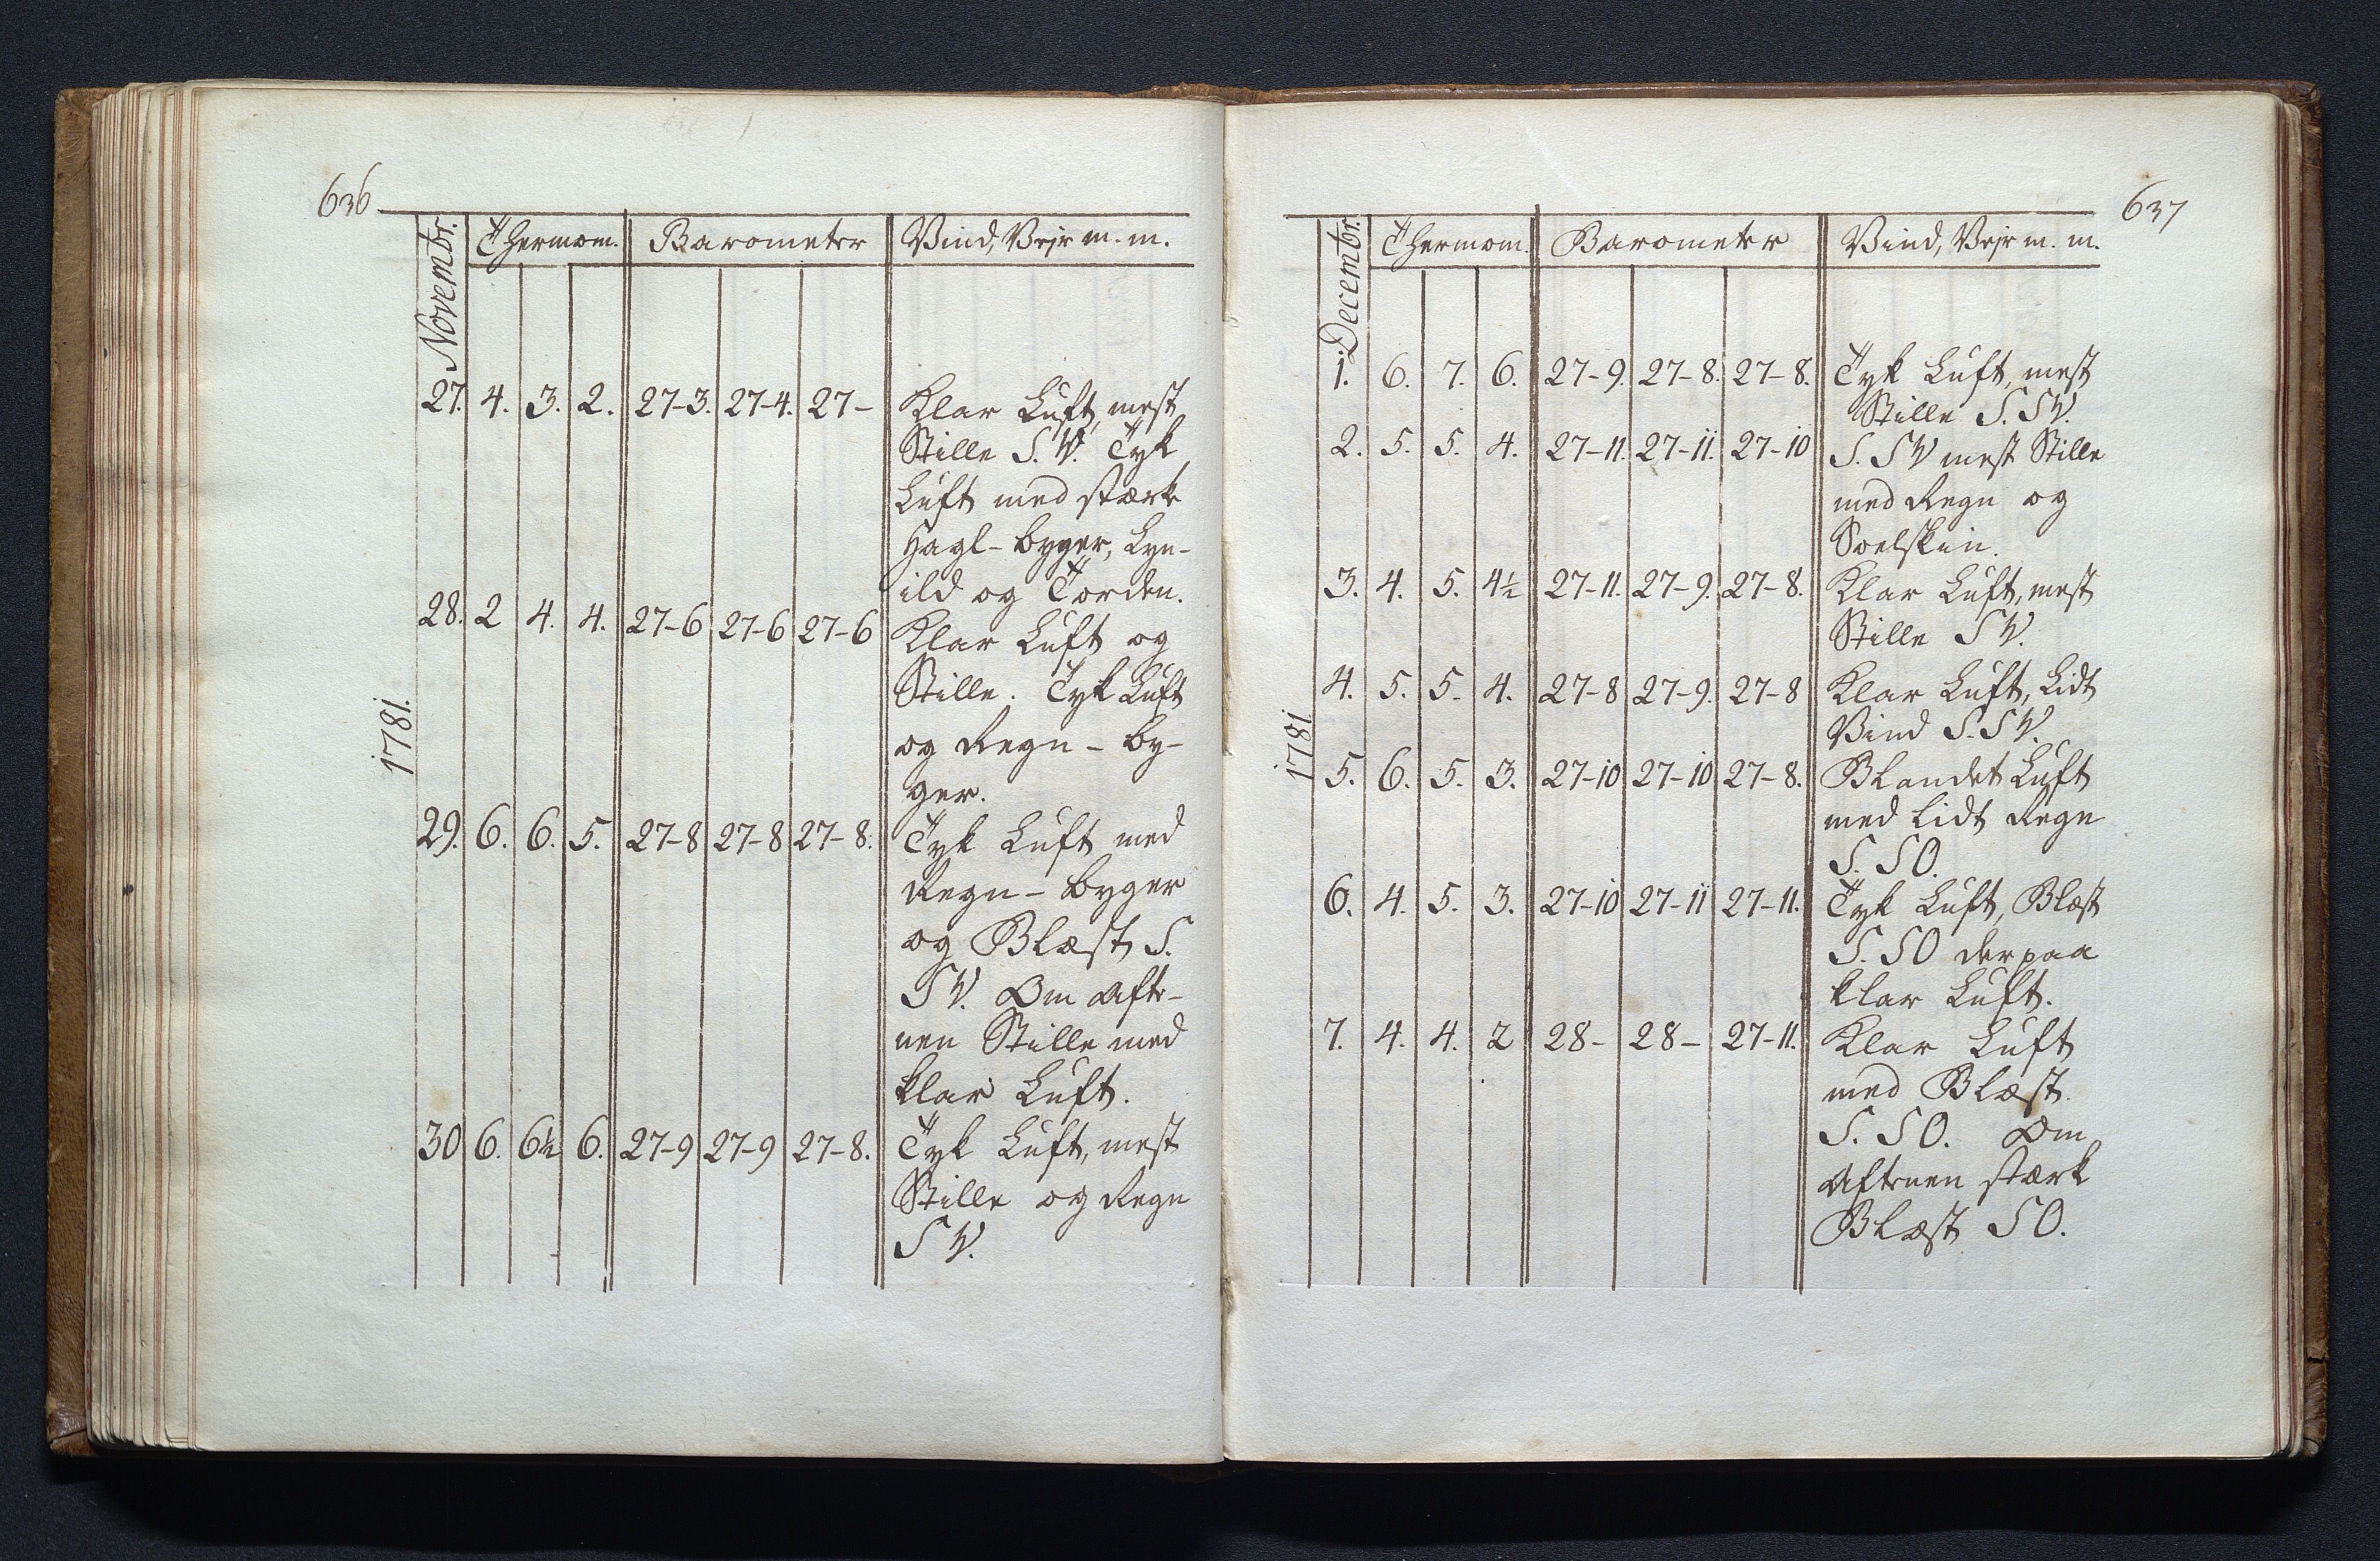 636
Novembr. Thermom. Barometer Vind, Vejr m. m.
27. 4. 3. 2. 27-3. 27-4. 27- Klar Luft, mest
Stille S. V. Tyk
Luft med stærke
Hagl-byger, Lyn-
ild og Torden.
28. 2 4. 4. 27-6 27-6 27-6 Klar Luft og
Stille. Tyk Luft
og Regn-by-
ger.
1781.
29. 6. 6. 5. 27-8 27-8 27-8. Tyk Luft med
Regn-byger
og Blæst S.
SV. Om Afte-
nen Stille med
klar Luft.
30 6. 6½ 6. 27-9 27-9 27-8. Tyk Luft, mest
Stille og Regn
SV.
637
Decembr. Thermom. Barometer Vind, Vejr m. m.
1. 6. 7. 6. 27-9. 27-8. 27-8. Tyk Luft, mest
Stille S. SV.
2. 5. 5. 4. 27-11. 27-11. 27-10 S. SV mest Stille
med Regn og
Soelskin.
3. 4. 5. 4½ 27-11. 27-9. 27-8. Klar Luft, mest
Stille SV.
4. 5. 5. 4. 27-8 27-9. 27-8 Klar Luft, Lidt
Vind S. SV.
1781.
5. 6. 5. 3. 27-10 27-10 27-8. Blandet Luft
med lidt Regn
S. SO.
6. 4. 5. 3. 27-10 27-11 27-11. Tyk Luft, Blæst
S. SO derpaa
klar Luft.
7. 4. 4. 2 28- 28- 27-11. Klar Luft
med Blæst.
S. SO. Om
Aftenen stærk
Blæst SO.